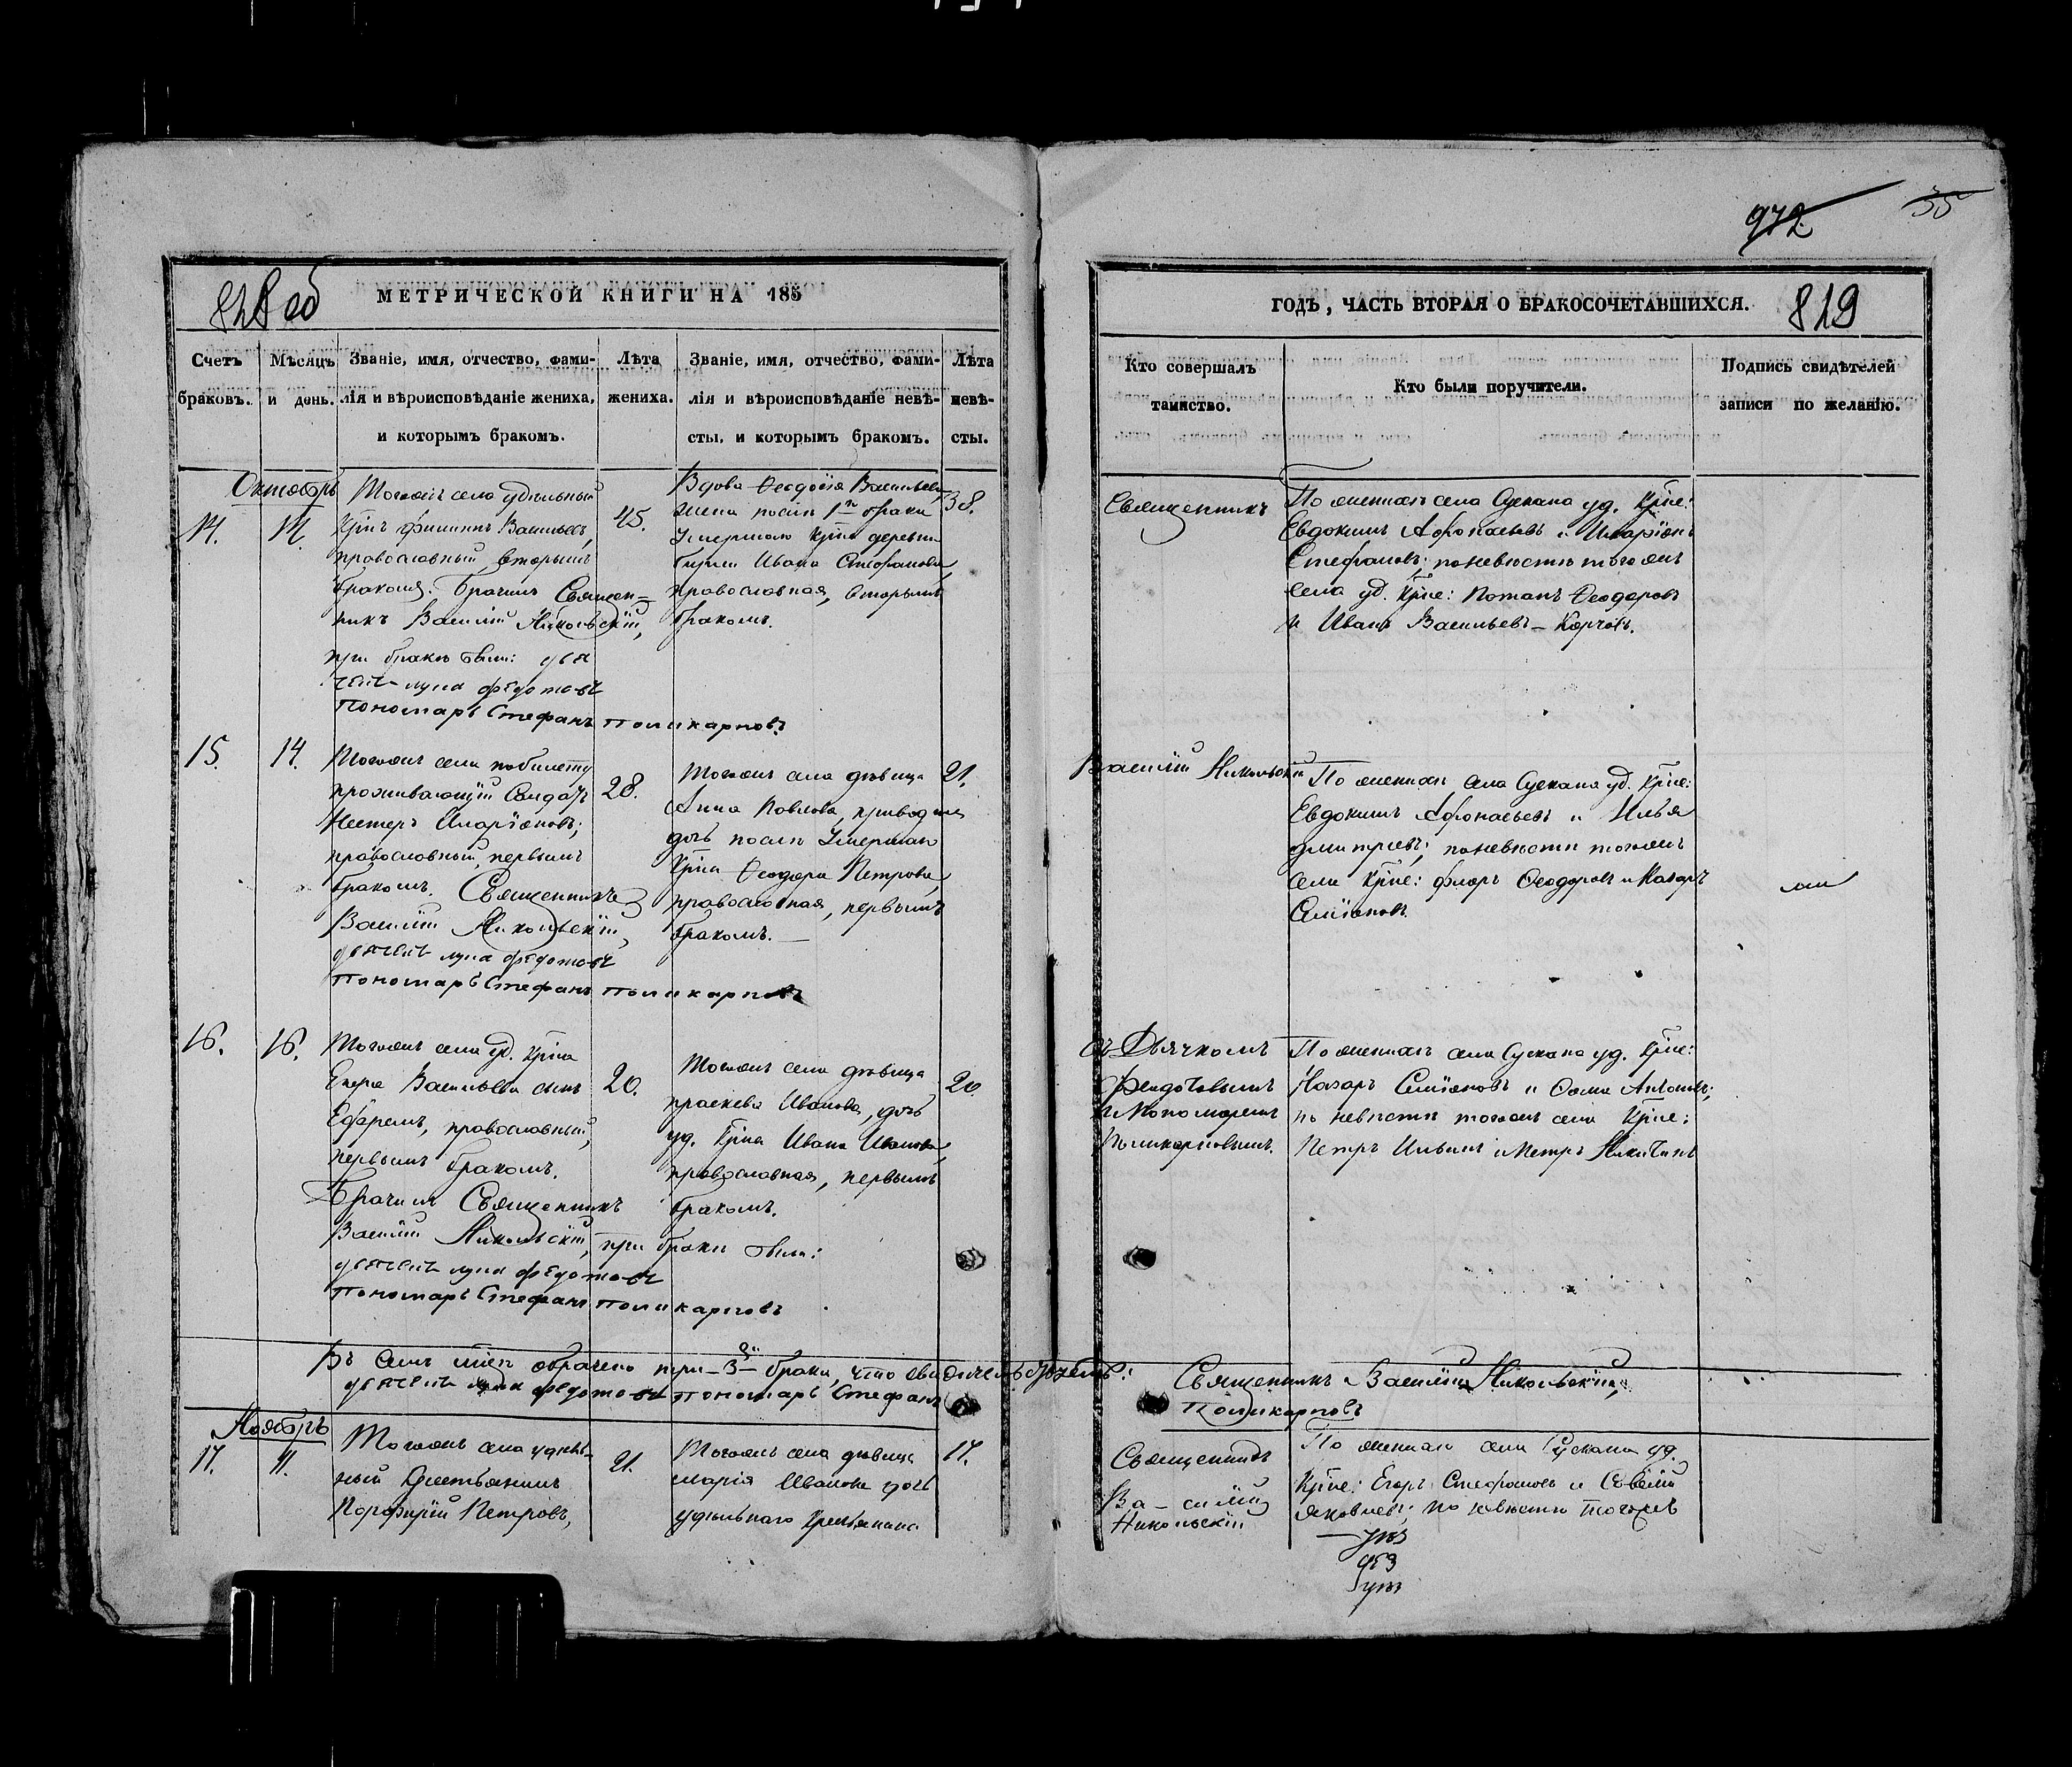 972 35
828 об МЕТРИЧЕСКОЙ КНИГИ НА 185
ГОДЪ, ЧАСТЬ ВТОРАЯ О БРАКОСОЧЕТАВШИХСЯ. 819
Счетъ браковъ.
Мѣсяцъ и день.
Званіе, имя, отчество, фами-
лія и вѣроисповѣданіе жениха,
и которымъ бракомъ.
Лѣта
жениха.
Званіе, имя, отчество, фами-
лія и вѣроисповѣданіе невѣ-
сты, и которымъ бракомъ.
Лѣта
невѣ-
сты.
Кто совершалъ
таинство.
Кто были поручители.
Подпись свидѣтелей
записи по желанію.
Октябрь
14.
14.
Тогожъ села удѣльный
Крнъ Филиппъ Васильевъ,
православный, вторымъ
бракомъ. Брачилъ Священ=
никъ Василій Никольскій,
при бракѣ были: дья
чекъ лука федотовъ
Пономарь Стефанъ поликарповъ
45.
Вдова Ѳеодосія Васильева
жена послѣ 1го брака
Умершаго Крна деревни
Ивана Стефанова,
Православная, вторымъ
бракомъ.
38.
Священникъ
По женихѣ села Сускана уд. Крне:
Евдокимъ Афонасьевъ и Иларіонъ
Стефановъ; поневѣстѣ тогожъ
села уд. Крне: Потапъ Ѳеодоровъ
и Иванъ Васильевъ–
15.
14.
Тогожъ села побилету
проживающій Солдатъ
Нестеръ Иларіоновъ;
православный, первымъ
бракомъ. Священникъ
Василій Никольскій,
дьячекъ лука федотовъ
Пономарь Стефанъ поликарповъ
28.
Тогожъ села дѣвица
Анна Павлова,
дочь послѣ Умершаго
Крна Ѳеодора Петрова,
православная, первымъ
бракомъ.
21.
Василій Никольскій
По женихѣ села Сускана уд. Крне:
Евдокимъ Афонасьевъ и Илья
дмитріевъ; поневѣсти тогожъ
села Крне: флоръ Ѳеодоровъ и Назаръ
Симіоновъ.
16.
16.
Тогожъ села уд. Крна
Егора Васильева сынъ
Ефремъ, православный,
первымъ бракомъ.
Брачилъ Священникъ
Василій Никольскій, при бракѣ были:
дьячекъ лука федотовъ
Пономарь Стефанъ поликарповъ
20.
Тогожъ села дѣвица
праскева Иванова, дочь
уд. Крна Ивана Иванова,
православная, первымъ
бракомъ.
20.
съ Дьячкомъ
Феодотовымъ
и Пономаремъ
Поликарповымъ.
По женихѣ села Сускана уд. Крне:
Назаръ Симіоновъ и Ѳома Антоновъ;
по невѣсти тогожъ села Крне:
Петръ Ильинъ и Петръ Никитинъ
Въ семъ м-цѣ обрачено три–3– брака, что свидѣтельствуемъ: Священникъ Василій Никольскій,
дьячекъ лука федотовъ пономарь Стефанъ Поликарповъ
Ноябрь
17.
11.
Тогожъ села удѣль-
ный Крестьянинъ
Порфирій Петровъ,
21.
Тогожъ села дѣвица
марія Иванова дочь
удѣльнаго Крестьянина
17.
Священникъ
Ва–силій
Никольскій
По женихѣ села Сускана уд.
Крне: Егоръ Стефановъ и Савелій
Яковлевъ; по невѣсти тогожъ